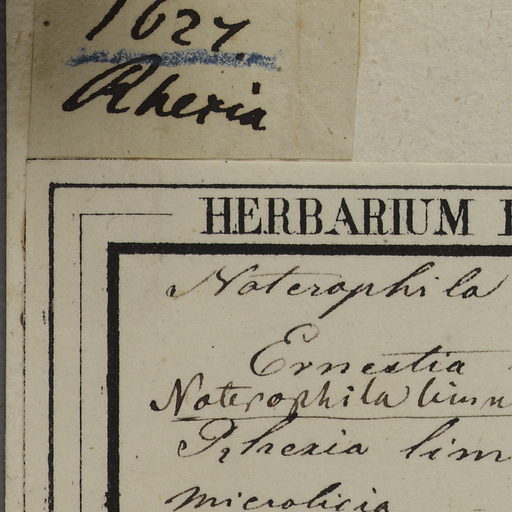 1627.
Rhexia
HERBARIUM
Noterophila
Ernestia
Noterophila limn
Rhexia lim
Microlicia